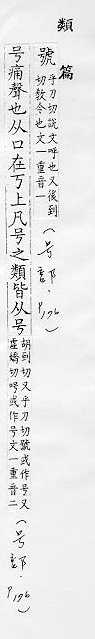 類篇
號乎刀切説文呼也又後到
切教令也文一重音一（号部.
号痛聲也从口在丂上凡号之類皆从号胡到切又乎刀切號或作号又
虛嬌切呺或作号文一重音二（号部.